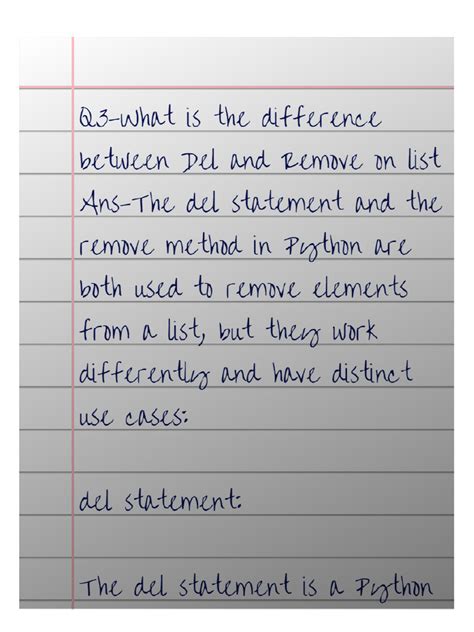 Q3-What is the difference
between Del and Remove on list
Ans-The del statement and the
remove method in Python are
both used to remove elements
from a list, but they work
differently and have distinct
use cases:
del statement:
The del statement is a Python